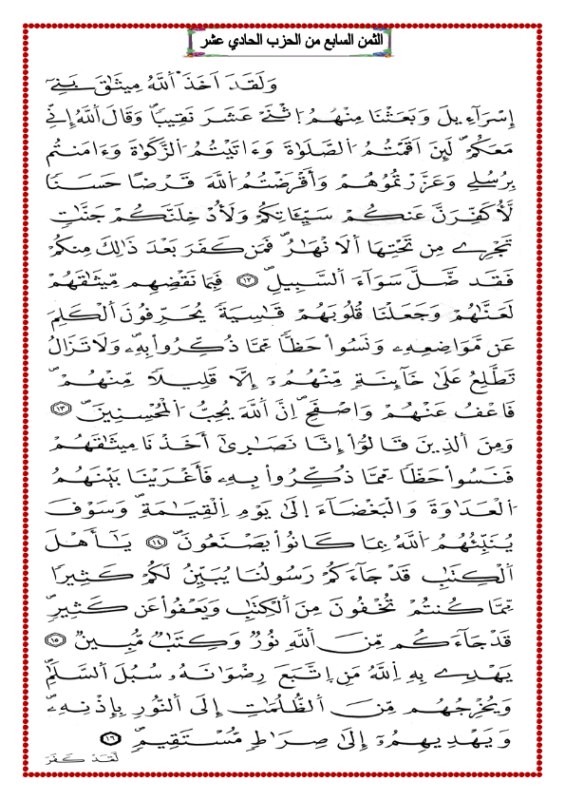 الثمن السابع من الحزب الحادي عشر
وَلَقَدَ اَخَذَ اَ۬للَّهُ مِيثَٰقَ بَنِےٓ
إِسْرَآءِيلَ وَبَعَثْنَا مِنْهُمُ اُ۪ثْنَےْ عَشَرَ نَقِيباٗۖ وَقَالَ اَ۬للَّهُ إِنِّے
مَعَكُمْۖ لَئِنَ اَقَمْتُمُ اُ۬لصَّلَوٰةَ وَءَاتَيْتُمُ اُ۬لزَّكَوٰةَ وَءَامَنتُم
بِرُسُلِے وَعَزَّرْتُمُوهُمْ وَأَقْرَضْتُمُ اُ۬للَّهَ قَرْضاً حَسَناٗ
لَّأُكَفِّرَنَّ عَنكُمْ سَيِّـَٔاتِكُمْ وَلَأُدْخِلَنَّكُمْ جَنَّٰتٖ
تَجْرِے مِن تَحْتِهَا اَ۬لَانْهَٰرُۖ فَمَن كَفَرَ بَعْدَ ذَٰلِكَ مِنكُمْ
فَقَد ضَّلَّ سَوَآءَ اَ۬لسَّبِيلِۖ ١٢ فَبِمَا نَقْضِهِم مِّيثَٰقَهُمْ
لَعَنَّٰهُمْ وَجَعَلْنَا قُلُوبَهُمْ قَٰسِيَةٗ يُحَرِّفُونَ اَ۬لْكَلِمَ
عَن مَّوَاضِعِهِۦ وَنَسُواْ حَظّاٗ مِّمَّا ذُكِّرُواْ بِهِۦۖ وَلَا تَزَالُ
تَطَّلِعُ عَلَىٰ خَآئِنَةٖ مِّنْهُمُۥٓ إِلَّا قَلِيلاٗ مِّنْهُمْۖ
فَاعْفُ عَنْهُمْ وَاصْفَحِۖ اِنَّ اَ۬للَّهَ يُحِبُّ اُ۬لْمُحْسِنِينَۖ ١٣
وَمِنَ اَ۬لذِينَ قَالُوٓاْ إِنَّا نَصَٰرَىٰٓ أَخَذْنَا مِيثَٰقَهُمْ
فَنَسُواْ حَظّاٗ مِّمَّا ذُكِّرُواْ بِهِۦ فَأَغْرَيْنَا بَيْنَهُمُ
اُ۬لْعَدَاوَةَ وَالْبَغْضَآءَ اِلَىٰ يَوْمِ اِ۬لْقِيَٰمَةِۖ وَسَوْفَ
يُنَبِّئُهُمُ اُ۬للَّهُ بِمَا كَانُواْ يَصْنَعُونَۖ ١٤ يَٰٓأَهْلَ
اَ۬لْكِتَٰبِ قَدْ جَآءَكُمْ رَسُولُنَا يُبَيِّنُ لَكُمْ كَثِيراٗ
مِّمَّا كُنتُمْ تُخْفُونَ مِنَ اَ۬لْكِتَٰبِ وَيَعْفُواْ عَن كَثِيرٖۖ
قَدْ جَآءَكُم مِّنَ اَ۬للَّهِ نُورٞ وَكِتَٰبٞ مُّبِينٞۖ ١٥
يَهْدِے بِهِ اِ۬للَّهُ مَنِ اِ۪تَّبَعَ رِضْوَٰنَهُۥ سُبُلَ اَ۬لسَّلَٰمِۖ
وَيُخْرِجُهُم مِّنَ اَ۬لظُّلُمَٰتِ إِلَى اَ۬لنُّورِ بِإِذْنِهِۦۖ
وَيَهْدِيهِمُۥٓ إِلَىٰ صِرَٰطٖ مُّسْتَقِيمٖۖ ١٦
لَّقَدْ كَفَرَ